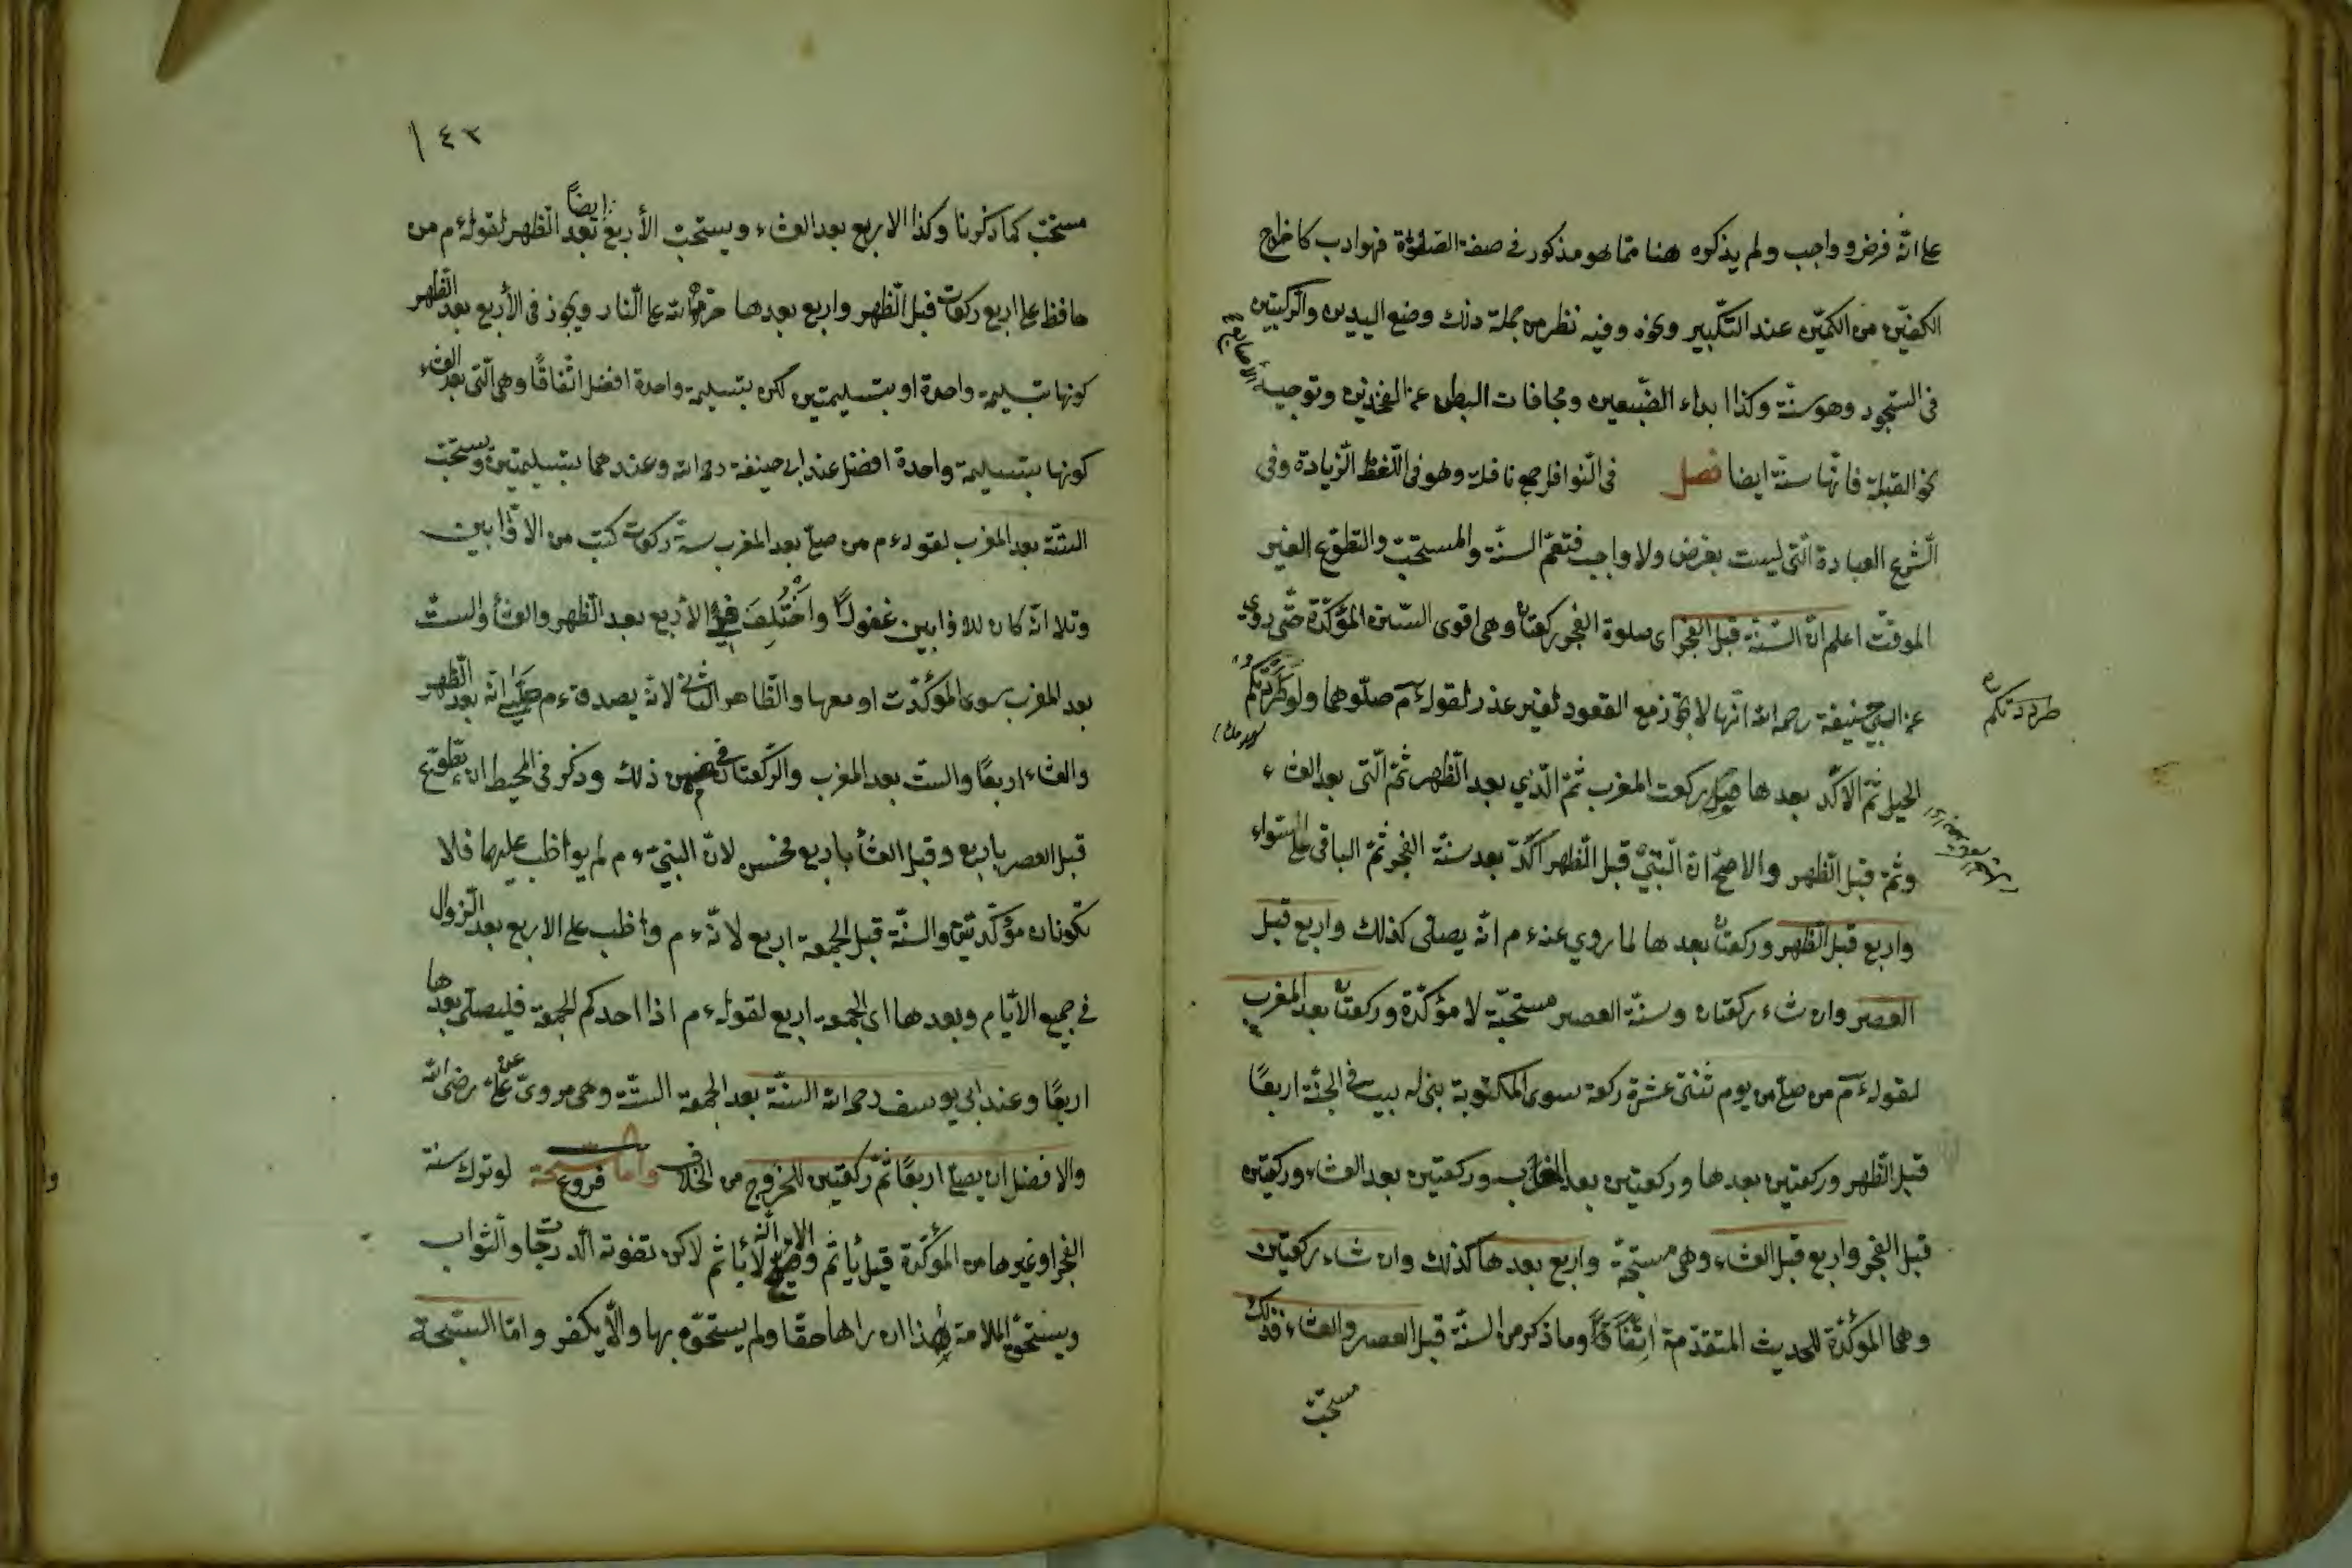 على انّه فرض و واجب ولم يذكره هنا ممّا هو مذكور في صفة الصّلوٰة فهو ادب كاخراج
الكفّين من الكمّين عند التّكبير ونحوه وفيه نظر من جملة ذلك وضع اليدين والرّكبتين
في السّجود وهو سنّة وكذا ابداء الضّبعين ومجافات البطن عن الفخذين وتوجيه الأصابع
نحو القبلة فانّها سنّة ايضا فصل في النّوافل جمع نافلة وهو في اللّغة الزّيادة وفي
الشّرع العبادة الّتي ليست بفرض ولا واجب فتعمّ السنّة والمستحبّ والتطوّع الغير
الموقّت اعلم انّ السّنّة قبل الفجر اى صلوة الفجر ركعتان وهى اقوى السّنن المؤكّدة حتّى روى
عن ابي حنيفة رحمه الله انّها لا تجوز مع القعود لغير عذر لقوله ءم صلّوهما ولو طردتكم
طردتكم
الخيل ثمّ الاكّد بعدها قيل ركعت المغرب ثمّ الّذي بعد الظّهر ثمّ الّتى بعد العشاء
وثمّ قبل الظّهر والاصحّ انّ الّتي قبل الظّهر اكّد بعد سنّة الفجر ثمّ الباقى على السّواء
واربع قبل الظّهر وركعتان بعدها لما روي عنه ءم انّه يصلّى كذلك واربع قبل
العصر وان شاء ركعتان وسنّة العصر مستحبّة لا مؤكّدة وركعتان بعد المغرب
لقوله ءم من صلّى من يوم ثنتى عشرة ركعة سوى المكتوبة بنى له بيت في الجنّة اربعًا
قبل الظّهر وركعتين بعدها وركعتين بعد المغرب وركعتين بعد العشاء وركعتين
قبل الفجر واربع قبل العشاء وهى مستحبّة واربع بعدها كذلك وان شاء ركعتين
وهما المؤكّدة للحديث المتقدّمة اتّفاقًا وما ذكر من السنّة قبل العصر والعشاء فذلك
مستحبّ
١٤٣
مستحبّ كما ذكرنا وكذا الاربع بعد العشاء ويستحبّ الأربع بعد الظّهر ايضاً لقوله ءم من
حافظ على اربع ركعات قبل الظّهر واربع بعدها حرّمه الله على النّار ويجوز في الأربع بعد الظّهر
كونها بتسليمة واحدة او بتسليمتين لكن بتسليمة واحدة افضل اتّفاقًا وهى الّتى بعد العشاء
كونها بتسليمة واحدة افضل عند ابى حنيفة رحمه الله وعندهما بتسليمتين ويستحبّ
الستّة بعد المغرب لقوله ءم من صلّى بعد المغرب ستّ ركعات كتب من الاوّابين
وتلا انّه كان للاوّابين غفورًا واختُلِفَ في الأربع بعد الظّهر والعشاء والستّ
بعد المغرب سوى المؤكّدت او معها والظّاهر الثّاني لانّه يصدق ءم صلّى انّه بعد الظّهر
والعشاء اربعًا والستّ بعد المغرب والرّكعتان في ضمن ذلك وذكر في المحيط ان يطّوّع
قبل العصر باربع وقبل العشاء باربع فحسن لانّ النبيّ ءم لم يواظب عليهما فلا
تكونان مؤكّدتين والسنّة قبل الجمعة اربع لانّه ءم واظب على الاربع بعد الزّوال
في جميع الأيّام وبعدها اى الجمعة اربع لقوله ءم اذا احدكم الجمعة فليصلّى بعدها
اربعًا وعند ابي يوسف رحمه الله السنّة بعد الجمعة الستّة وهى مروىّ عن علىّ رضى الله
والافضل ان يصلّى اربعًا ثمّ ركعتين للخروج من الخلاف فروع لو ترك سنة
الفجر او غيرها من المؤكّدة قيل يأثم وقيل لا يأثم لاكن تفوته الدّرجات والثّواب
ويستحقّ الملامة هذا ان راها حقّا ولم يستخفّ بها والّا يكفر وامّا السّبحة